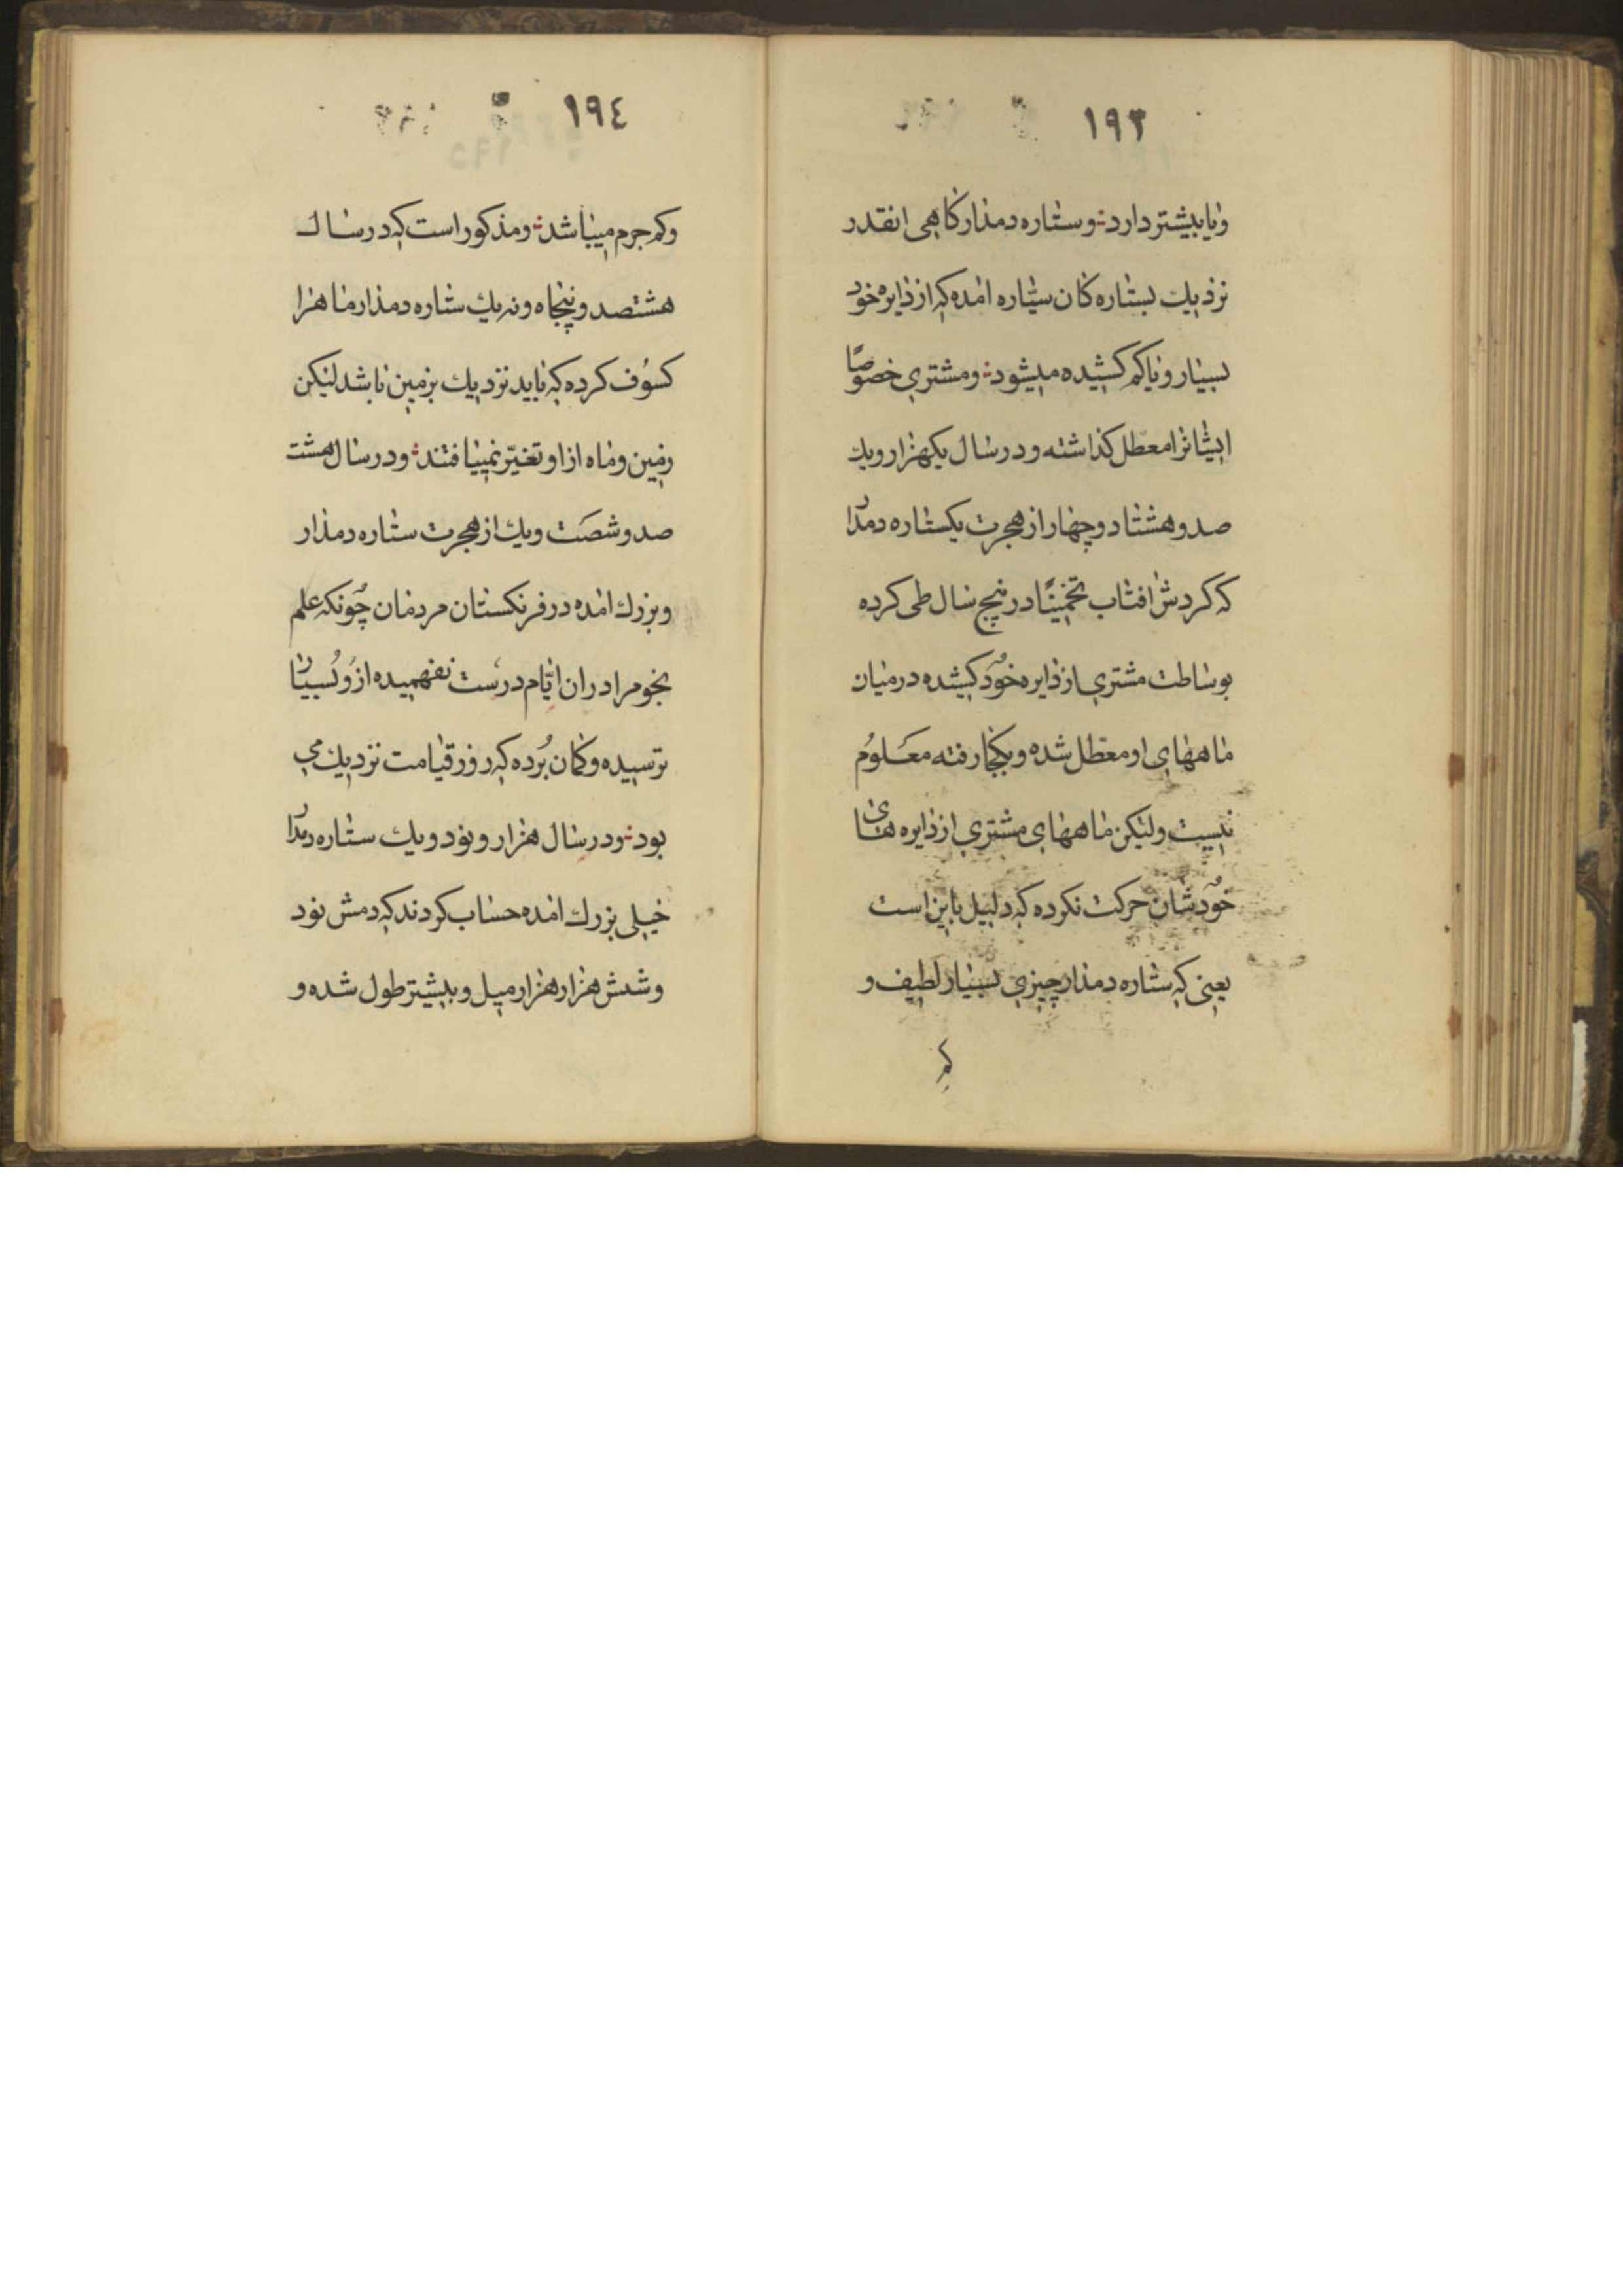 ١٩٣
ویا بیشتر دارد ؛ و ستاره دمدار کاهی انقدر
نزدیك بستاره کان سیّاره امده که از دایره خود
بسیار و یا کم کشیده میشود ؛ و مشتری خصوصًا
ایشانرا معطل کذاشته و در سال یکهزار و یك
صد و هشتاد و چهار از هجرت یکستاره دمدار
که کردش افتاب تخمینًا در پنج سال طی کرده
بوساطت مشتری از دایره خُود کشیده در میان
ماههای او معطّل شده و بکجا رفته معلوُم
نیست ولیکن ماههای مشتری از دایره های
خُودشان حرکت نکرده که دلیل باین است
یعنی که ستاره دمدار چیزی بسیار لطیف و
کم
١٩٤
و کم جرم میباشد ؛ و مذکور است که در سال
هشتصد و پنجاه و نه یك ستاره دمدار ماه را
کسوُف کرده که باید نزدیك بزمین باشد لیکن
زمین و ماه از او تغیّر نمییافتند ؛ و در سال هشت
صد و شصَت و یك از هجرت ستاره دمدار
و بزرك امده در فرنکستان مردمان چُونکه علم
نجوم را در ان ایّام درست نفهمیده از وُ بسیار
ترسیده و کمان بُرده که روز قیامت نزدیك می
بود ؛ و در سال هزار و نود و یك ستاره دمدار
خیلی بزرك امده حساب کردند که دمش نود
و شش هزار هزار میل و بیشتر طول شده و